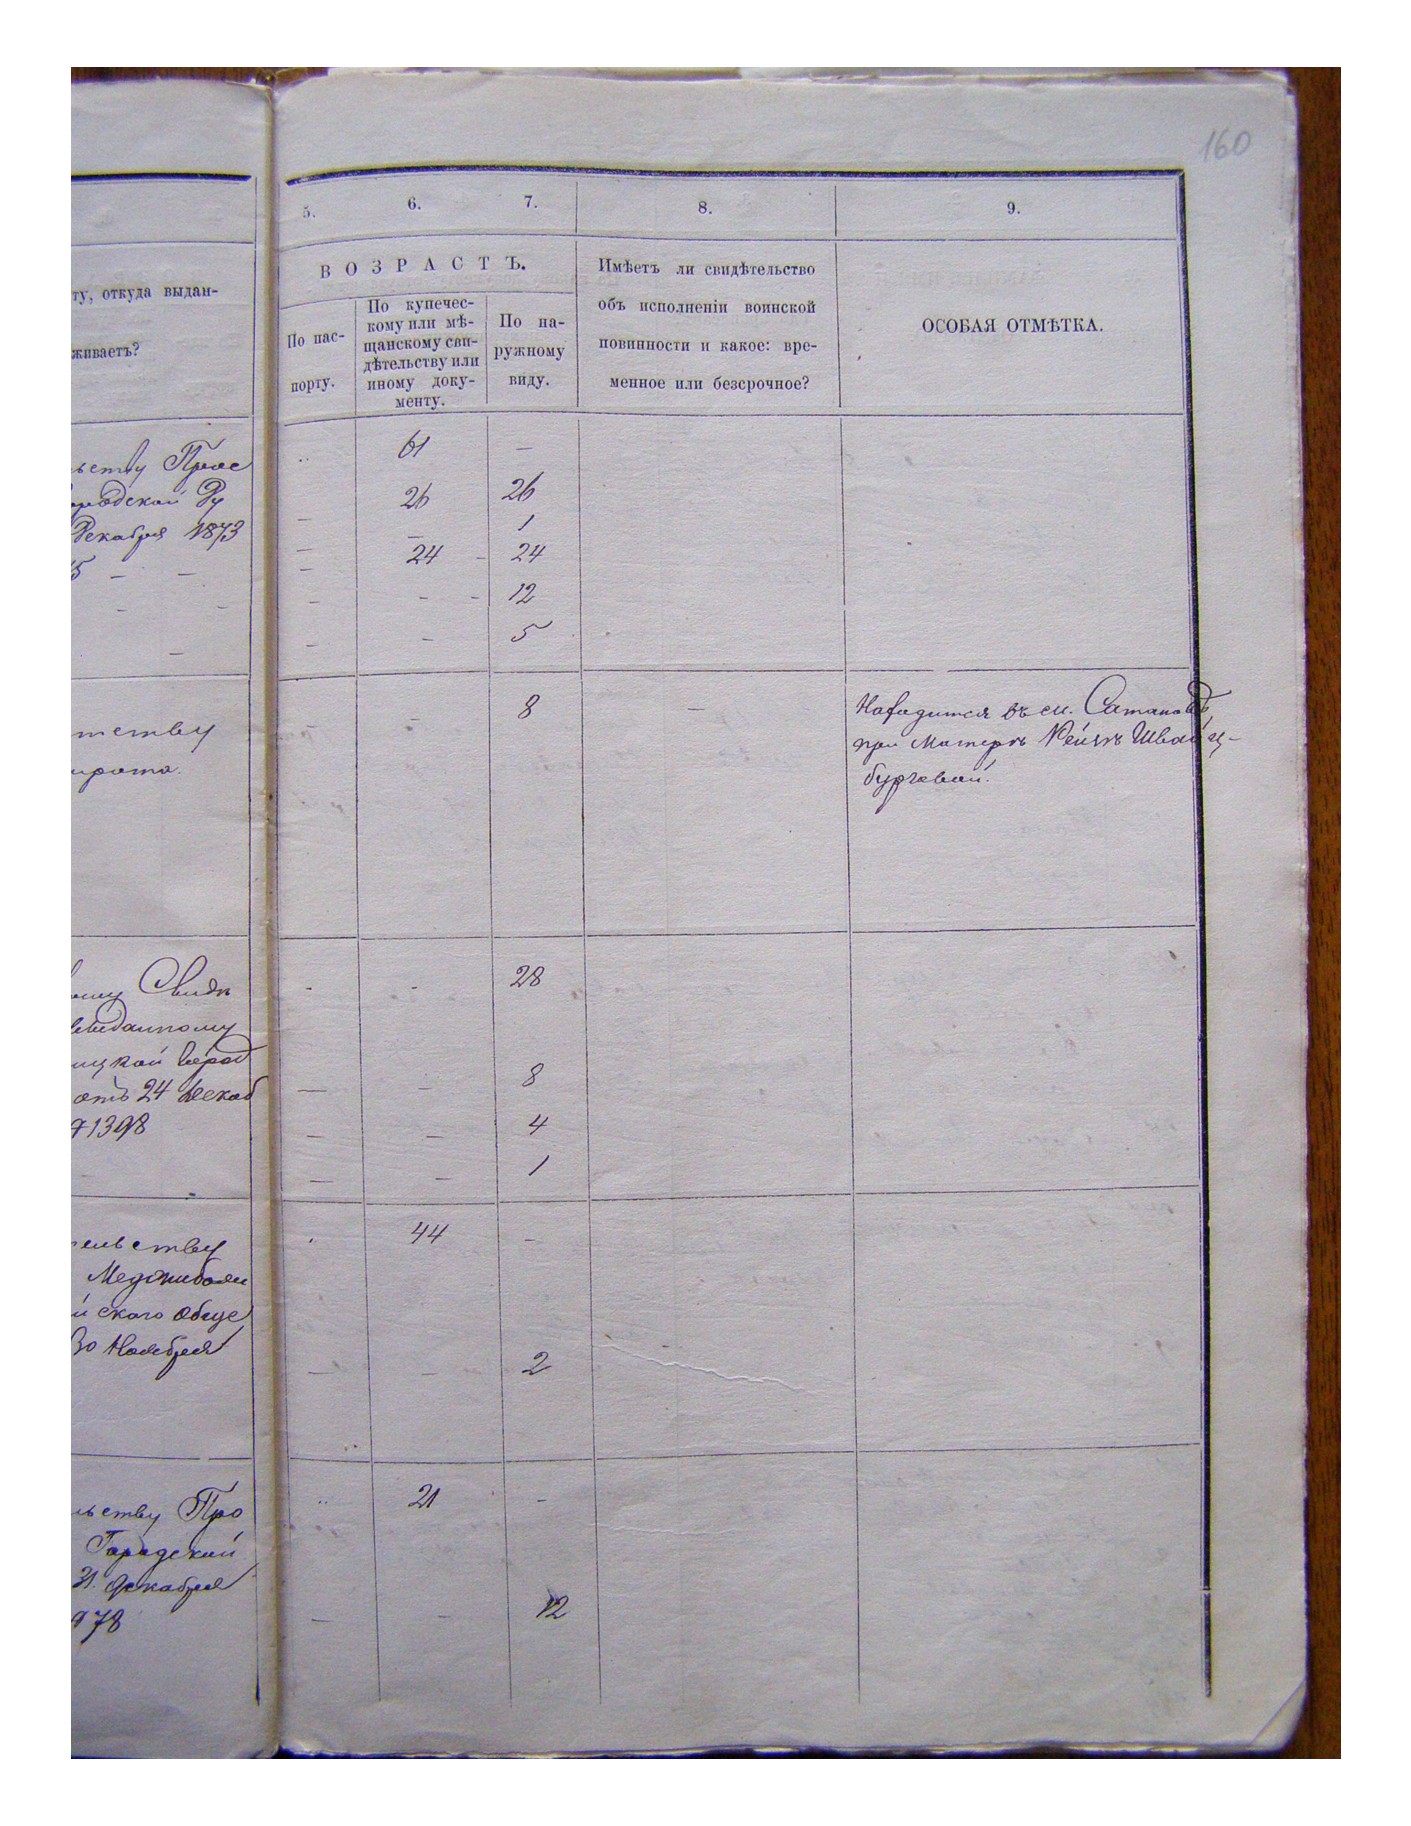 160
5. 6. 7. 8. 9.
ту, откуда выдан-
живаетъ?
ВОЗРАСТЪ.
По пас-
порту.
По купечес-
кому или мѣ-
щанскому сви-
дѣтельству или
иному доку-
менту.
По на-
ружному
виду.
Имѣетъ ли свидѣтельство
объ исполненіи воинской
повинности и какое: вре-
менное или безсрочное?
ОСОБАЯ ОТМѢТКА.
ьству Прос
61 —
Ду
— 26 26
Декабря 1873
— — 1
5 — —
— 24 - 24
— —
— - - 12
—
— - 5
— - 8 —
Находится въ м. Сатановѣ
при матерѣ Рейзѣ Швай
бурговой.
тству
- - 28
Свидѣ
выданному
ицкой
отъ 24 Декаб
1398
— - 8
— — 4
— — 1
44 -
ельству
Меджибож
йского обще
30 Ноября
— — 2
21 -
льству Про
Городской
31 Декабря
978
— - 12